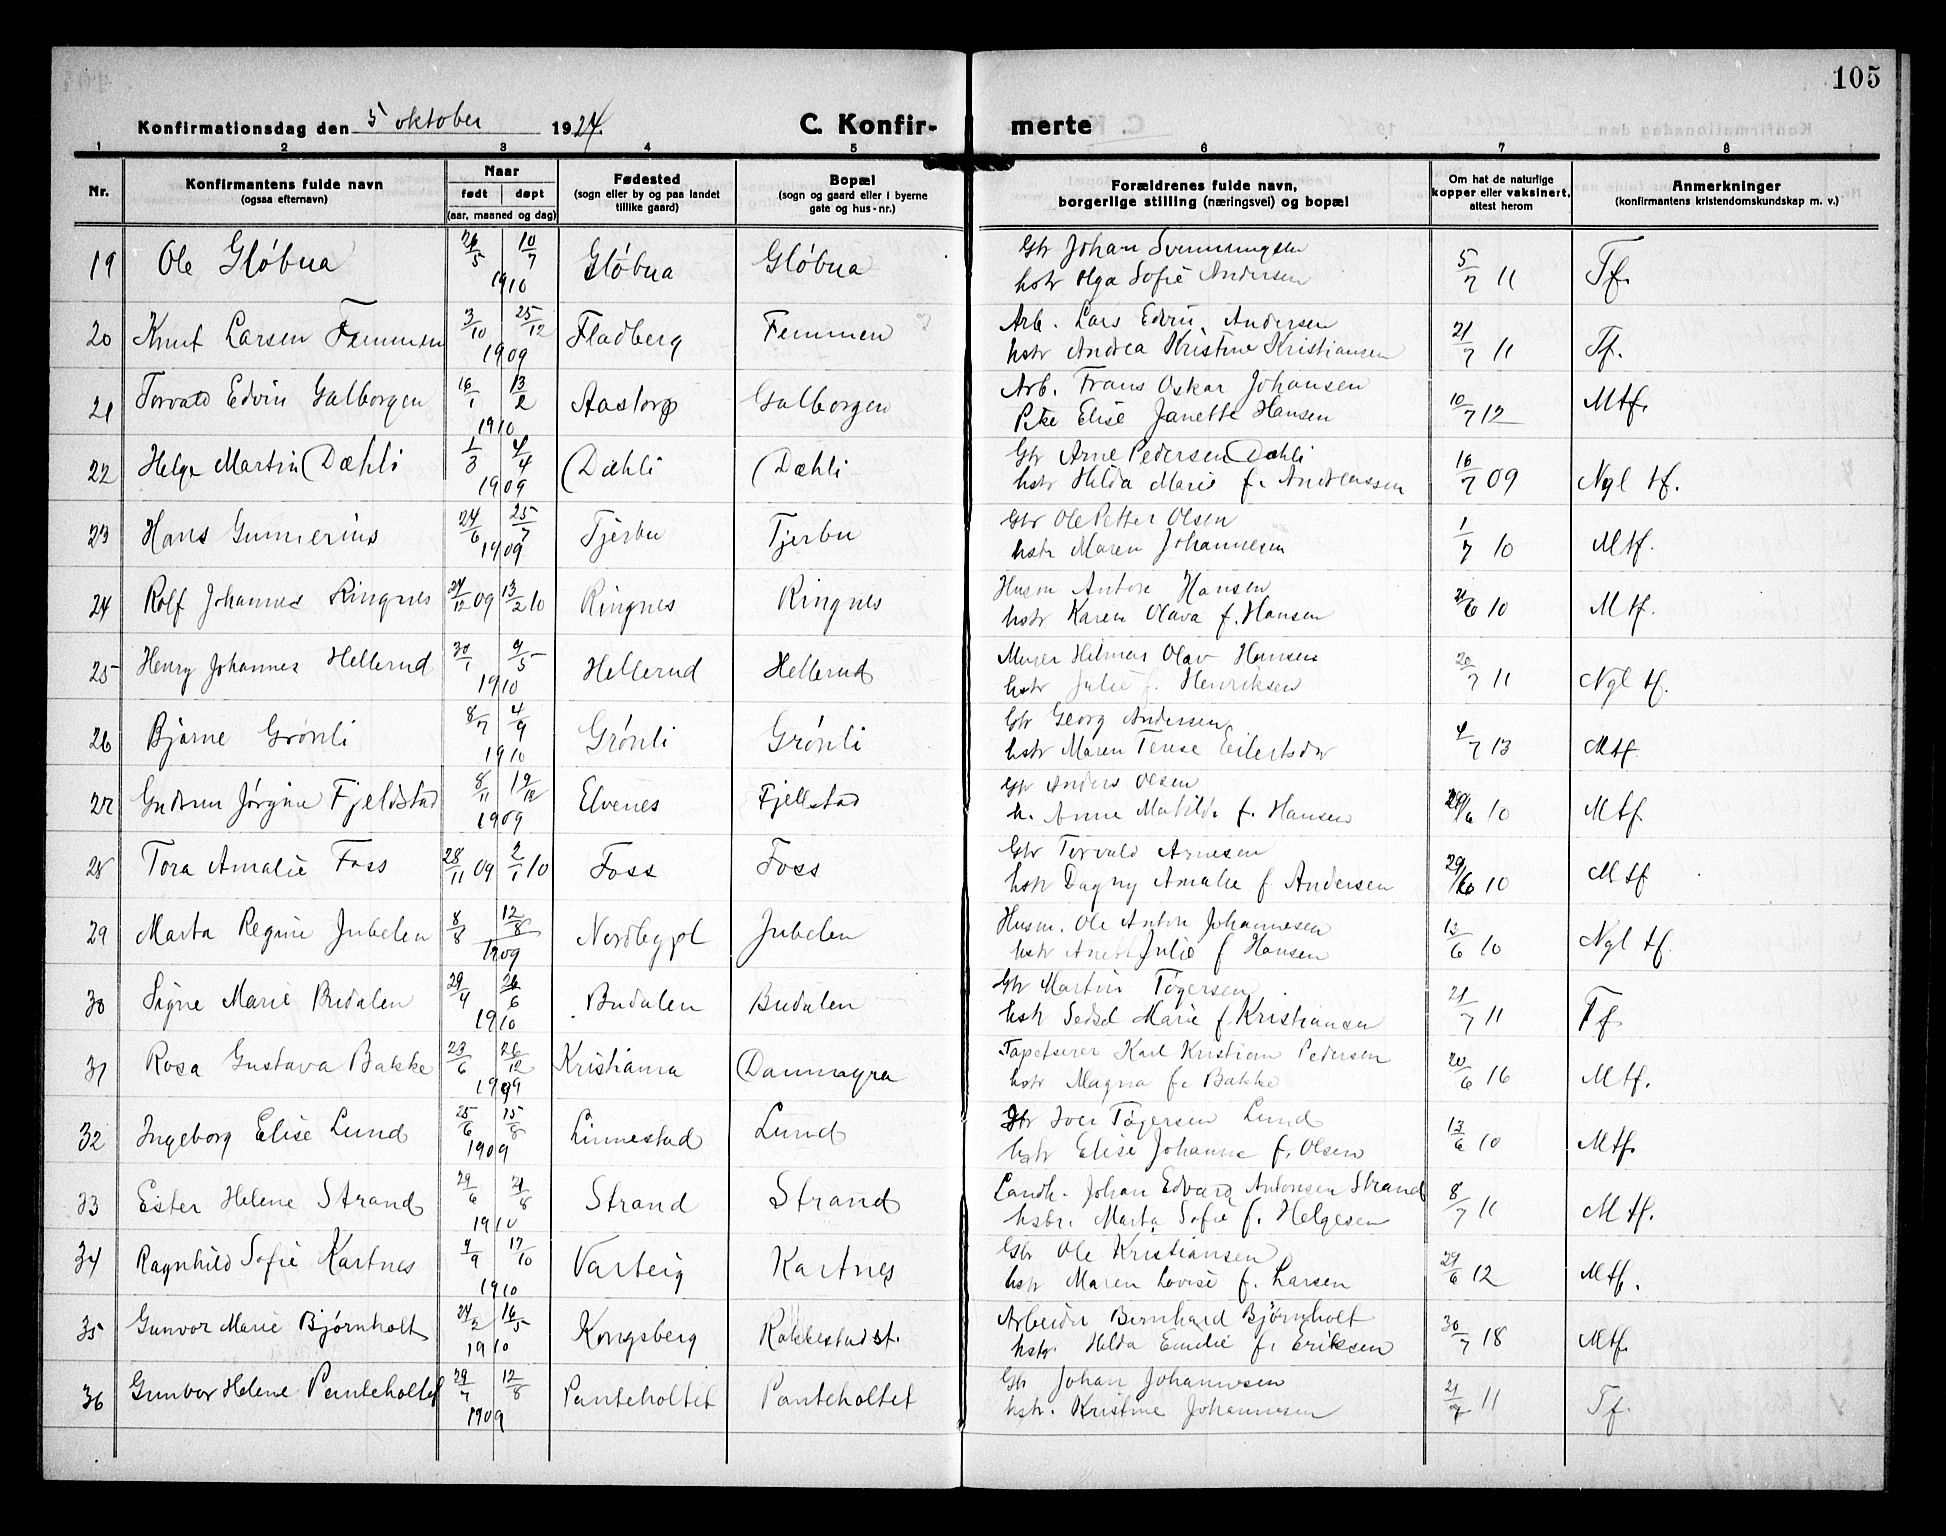 105
Konfirmationsdag den 5 oktober 1924. C. Konfir- merte
1 2 3 4 5 6 7 8
Nr. Konfirmantens fulde navn (ogsaa efternavn) Naar født døpt (aar, maaned og dag) Fødested (sogn eller by og paa landet tillike gaard) Bopæl (sogn og gaard eller i byerne gate og hus-nr.) Forældrenes fulde navn, borgerlige stilling (næringsvei) og bopæl Om hat de naturlige kopper eller vaksinert, attest herom Anmerkninger (konfirmantens kristendomskundskap m. v.)
19 Ole Gløbua 26/5 10/7 1910 Gløbua Gløbua Gbr Johan Svenningsen
hstr Olga Sofie Andersen 5/7 11 Tf.
20 Knut Larsen Femmen 3/10 25/12 1909 Fladberg Femmen Arb. Lars Edvin Andersen
hstr Andrea Kristine Kristiansen 21/7 11 Tf.
21 Torvald Edvin Galborgen 16/1 13/2 1910 Aastorp Galborgen Arb. Frans Oskar Johansen
Pike Elise Janette Hansen 10/7 12 Mtf.
22 Helge Martin Dæhli 1/3 4/4 1909 Dæhli Dæhli Gbr Arne Pedersen Dæhli
hstr Hilda Marie f. Andreassen 16/7 09 Ngl tf.
23 Hans Gunnerius 24/6 25/7 1909 Tjerbu Tjerbu Gbr Ole Petter Olsen
hstr Maren Johannesen 1/7 10 Mtf.
24 Rolf Johannes Ringnes 24/12 09 13/2 10 Ringnes Ringnes Husm Anton Hansen
hstr Karen Olava f. Hansen 21/6 10 Mtf.
25 Henry Johannes Hellerud 30/1 9/5 1910 Hellerud Hellerud Murer Hilmar Olav Hansen
hstr Julie f. Henriksen 20/7 11 Ngl tf.
26 Bjarne Grønli 8/7 4/9 1910 Grønli Grønli Gbr Georg Andersen
hstr Maren Terese Eilertsdtr 4/7 13 Mtf
27 Gudrun Jørgine Fjeldstad 8/11 19/12 1909 Elvenes Fjellstad Gbr Anders Olsen
h. Anne Matilde f. Hansen 29/6 10 Mtf
28 Tora Amalie Foss 28/11 09 2/1 10 Foss Foss Gbr Torvald Arnesen
hstr Dagny Amalie f Andersen 29/6 10 Mtf
29 Marta Regine Jubelen 8/8 12/8 1909 Nordbypl Jubelen Husm. Ole Anton Johannesen
hstr Julie f Hansen 13/6 10 Ngl tf.
30 Signe Marie Budalen 29/4 26/6 1910 Budalen Budalen Gbr Martin Tøgersen
hstr Sedsel Marie f Kristiansen 21/7 11 Tf
31 Rosa Gustava Bakke 23/6 26/12 1909 Kristiania Dammyra Tapetserer Karl Kristian Pedersen
hstr Magna f. Bakke 20/6 16 Mtf.
32 Ingeborg Elise Lund 25/6 15/8 1909 Linnestad Lund Gbr Iver Tøgersen Lund
hstr Elise Johanne f. Olsen 13/6 10 Mtf.
33 Ester Helene Strand 29/6 21/8 1910 Strand Strand Landh. Johan Edvard Antonsen Strand
hstr. Marta Sofie f. Helgesen 8/7 11 Mtf.
34 Ragnhild Sofie Kartnes 9/9 17/10 1910 Varteig Kartnes Gbr Ole Kristiansen
hstr Maren Lovise f. Larsen 29/6 12 Mtf.
35 Gunvor Marie Bjørnholt 24/2 16/5 1910 Kongsberg Rakkestad st. Arbeider Bernhard Bjørnholt
hstr. Hilda Emilie f. Eriksen 30/7 18 Mtf.
36 Gunvor Helene Panteholtet 29/7 12/8 1909 Panteholtet Panteholtet Gbr Johan Johannesen
hstr. Kristine Johannesen 21/7 11 Tf.